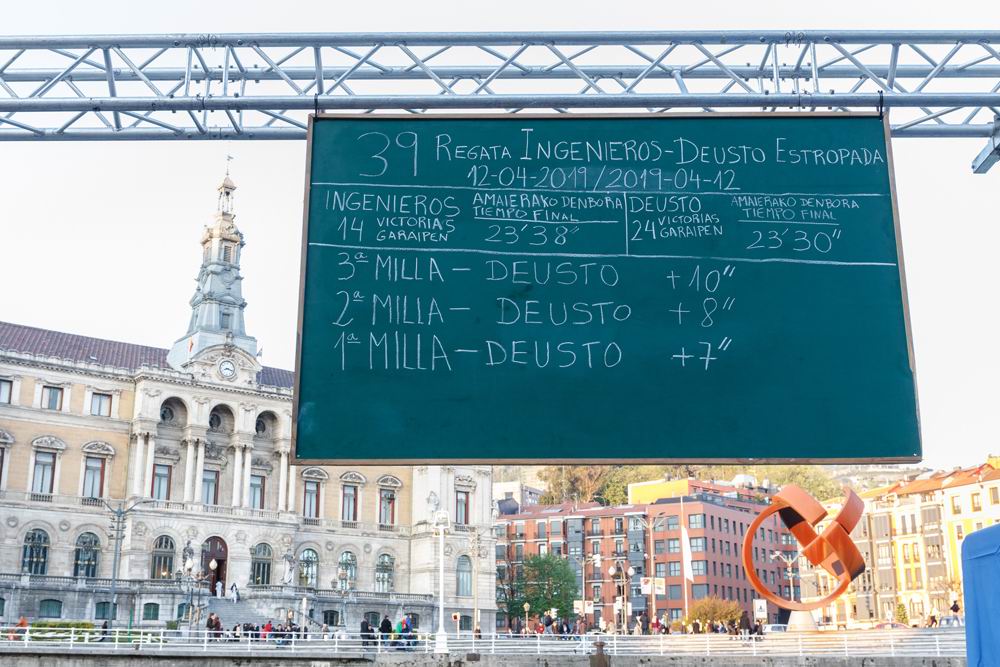 39 REGATA INGENIEROS-DEUSTO ESTROPADA
12-04-2019/2019-04-12
INGENIEROS
14 VICTORIAS
GARAIPEN
AMAIERAKO DENBORA
TIEMPO FINAL
23'38"
DEUSTO
24 VICTORIAS
GARAIPEN
AMAIERAKO DENBORA
TIEMPO FINAL
23'30"
3ª MILLA - DEUSTO +10"
2ª MILLA - DEUSTO +8"
1ª MILLA - DEUSTO +7"